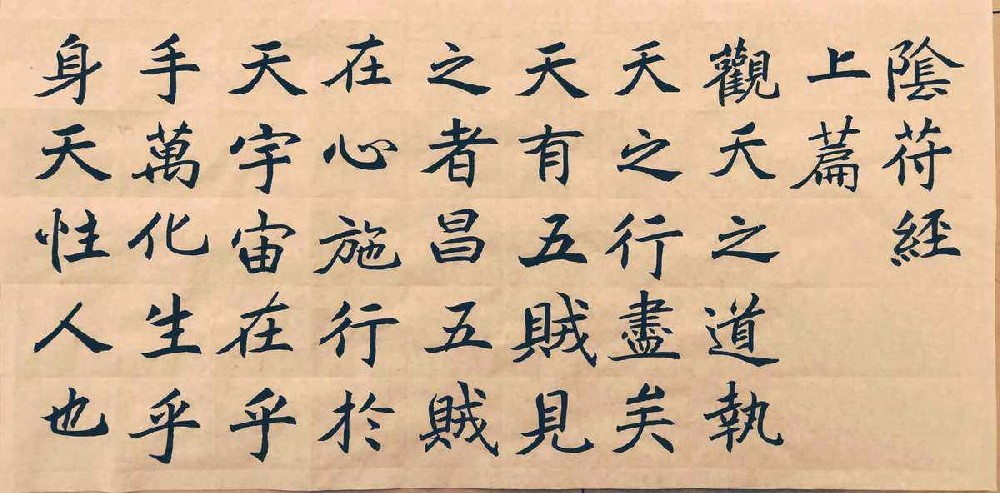 陰符經
上篇
觀天之道執
天之行盡矣
天有五賊見
之者昌五賊
在心施行於
天宇宙在乎
手萬化生乎
身天性人也